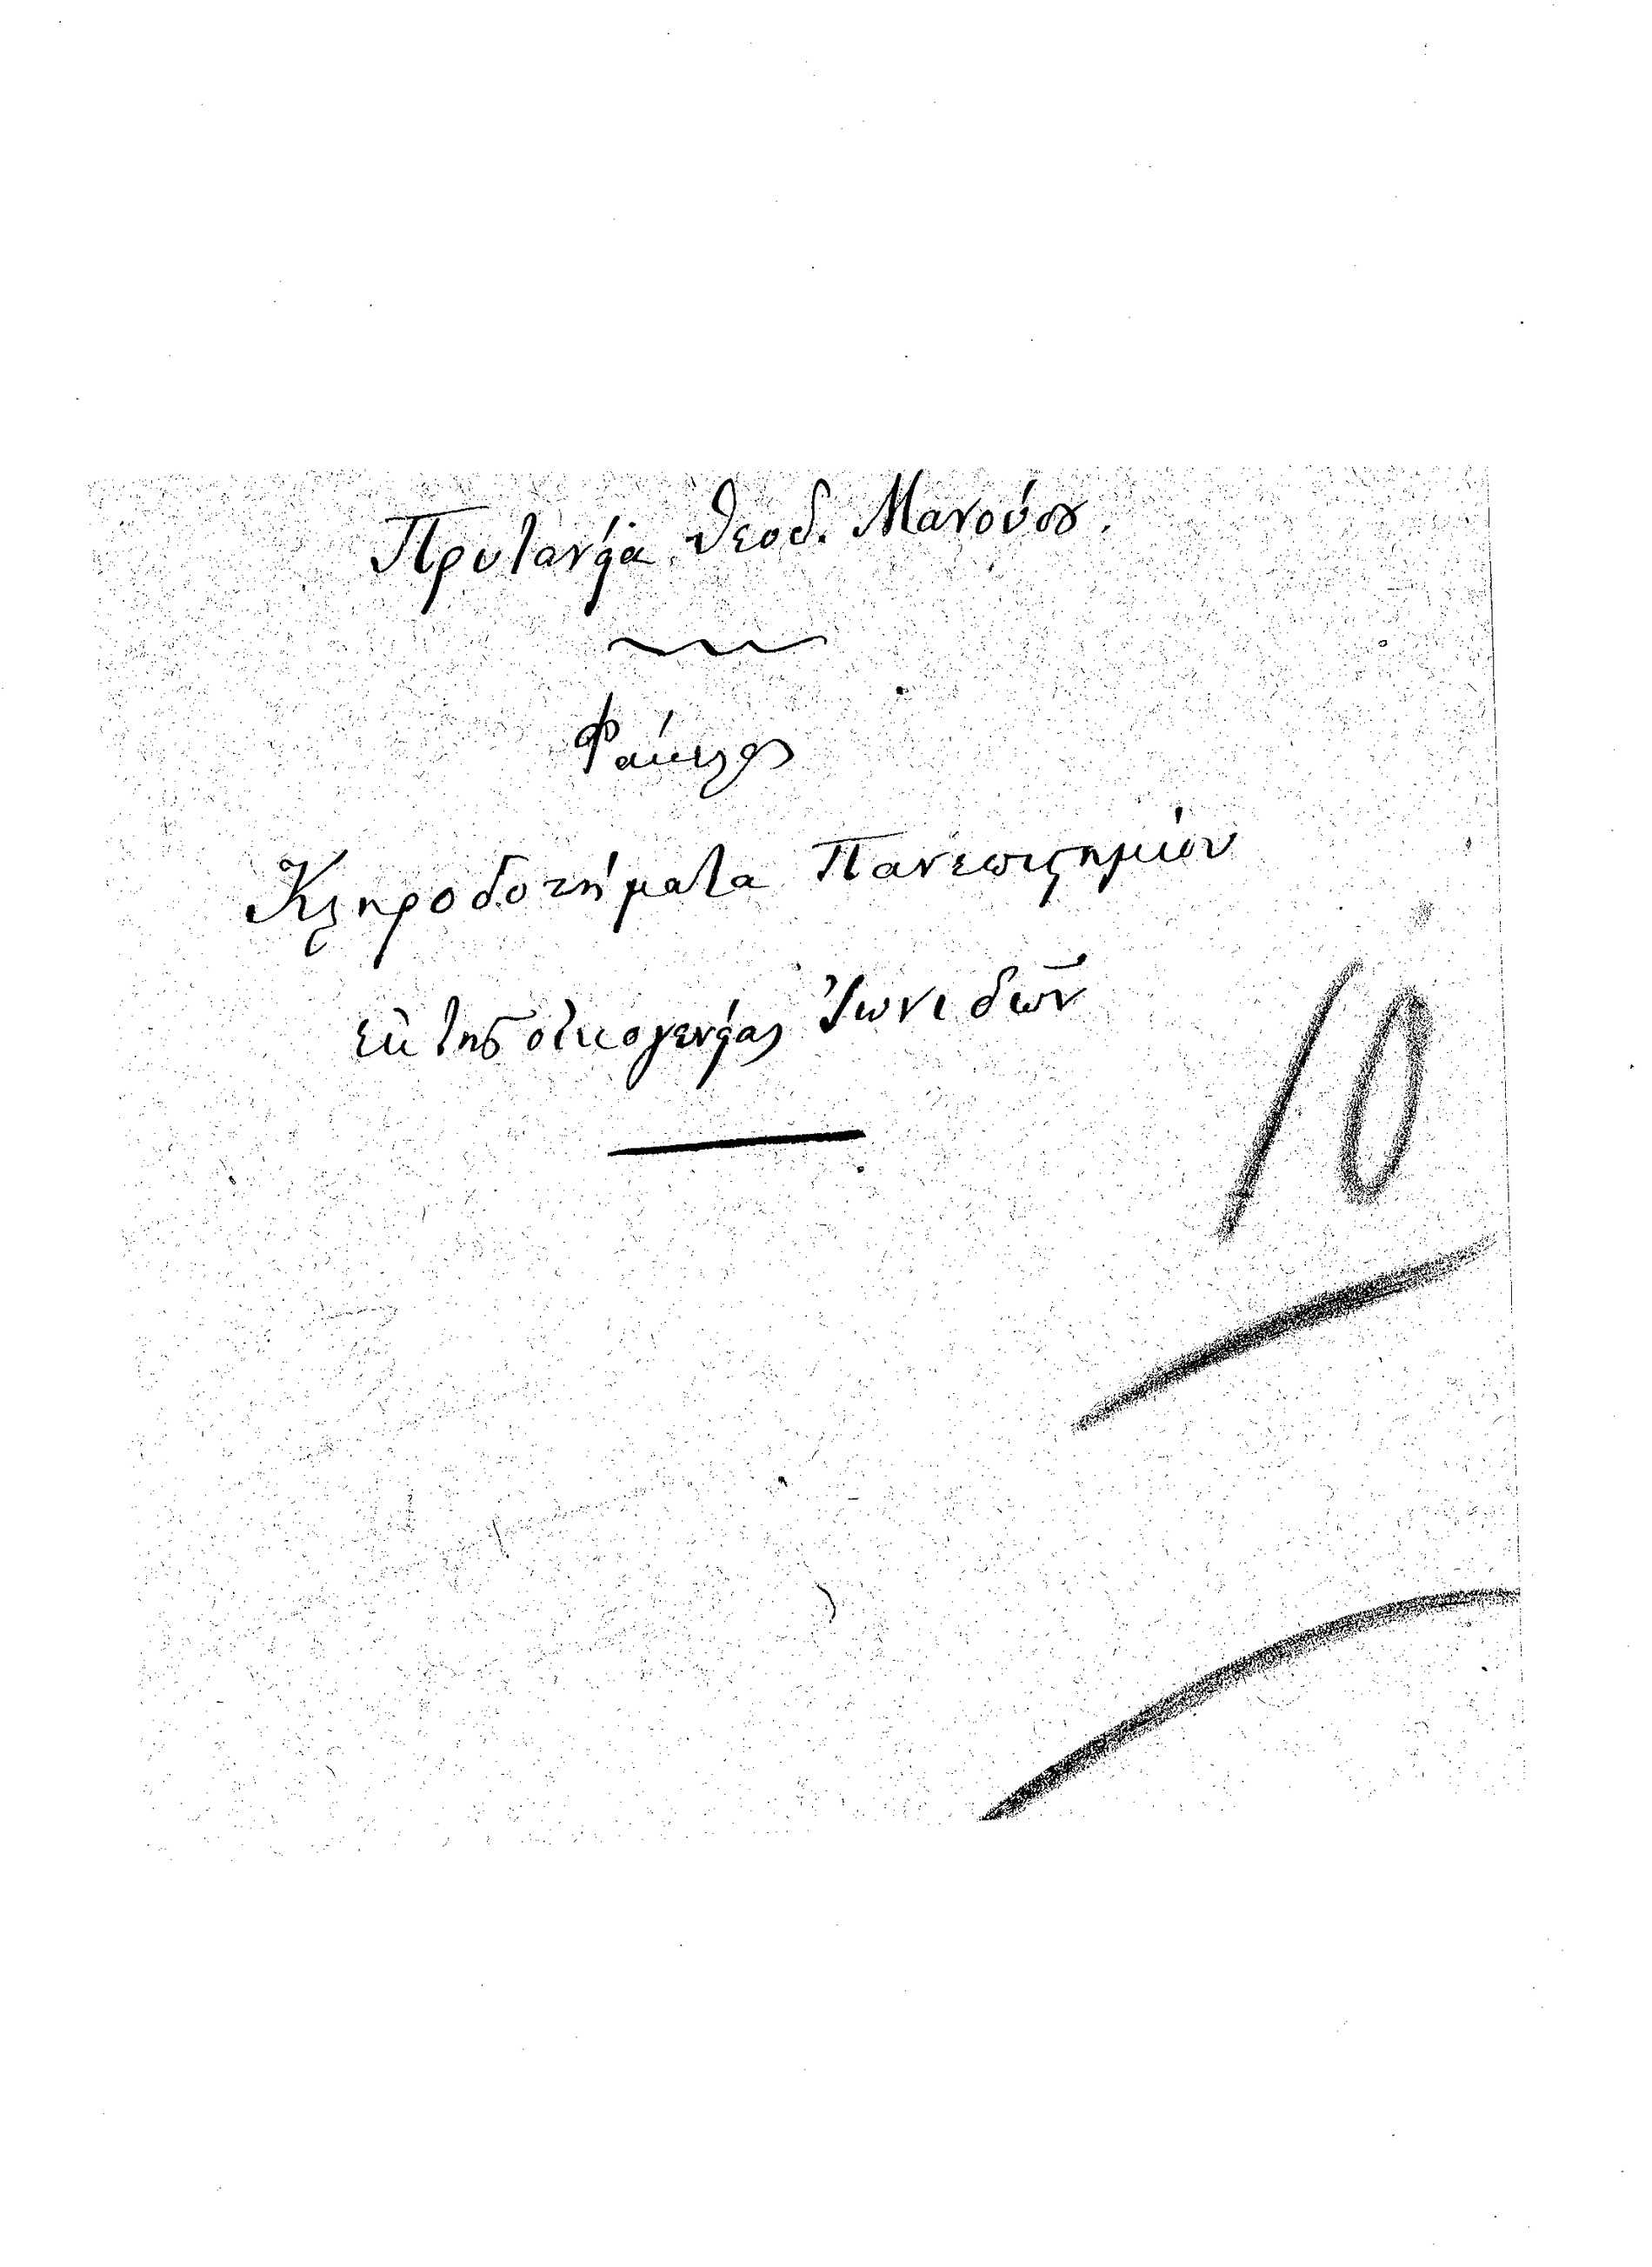 Πρυτανεία Θεοδ. Μανούσου.
Φάκελος
Κληροδοτήματα Πανεπιστημίου
ἐκ της οἰκογενείας Ἰωνιδῶν
10